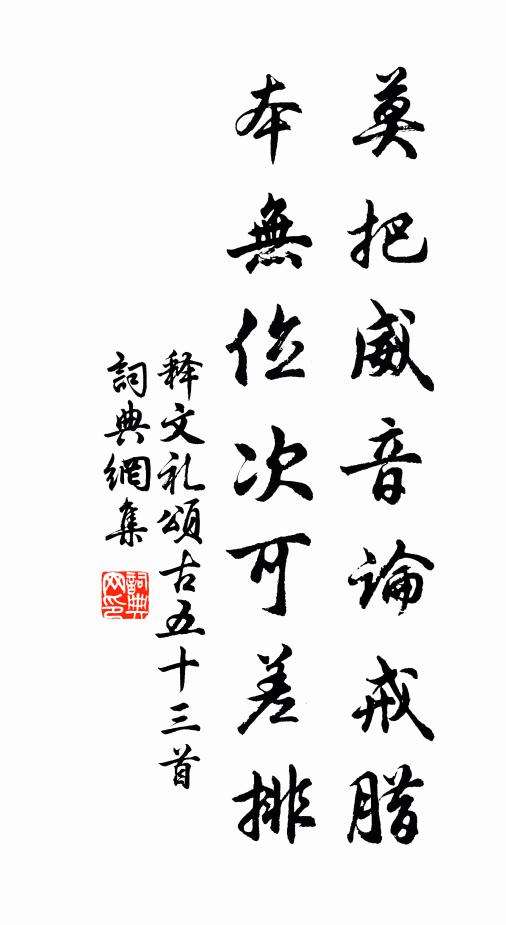 莫把威音論戒腊
本無位次可差排
释文礼頌古五十三首
詞典網集
詞典网印